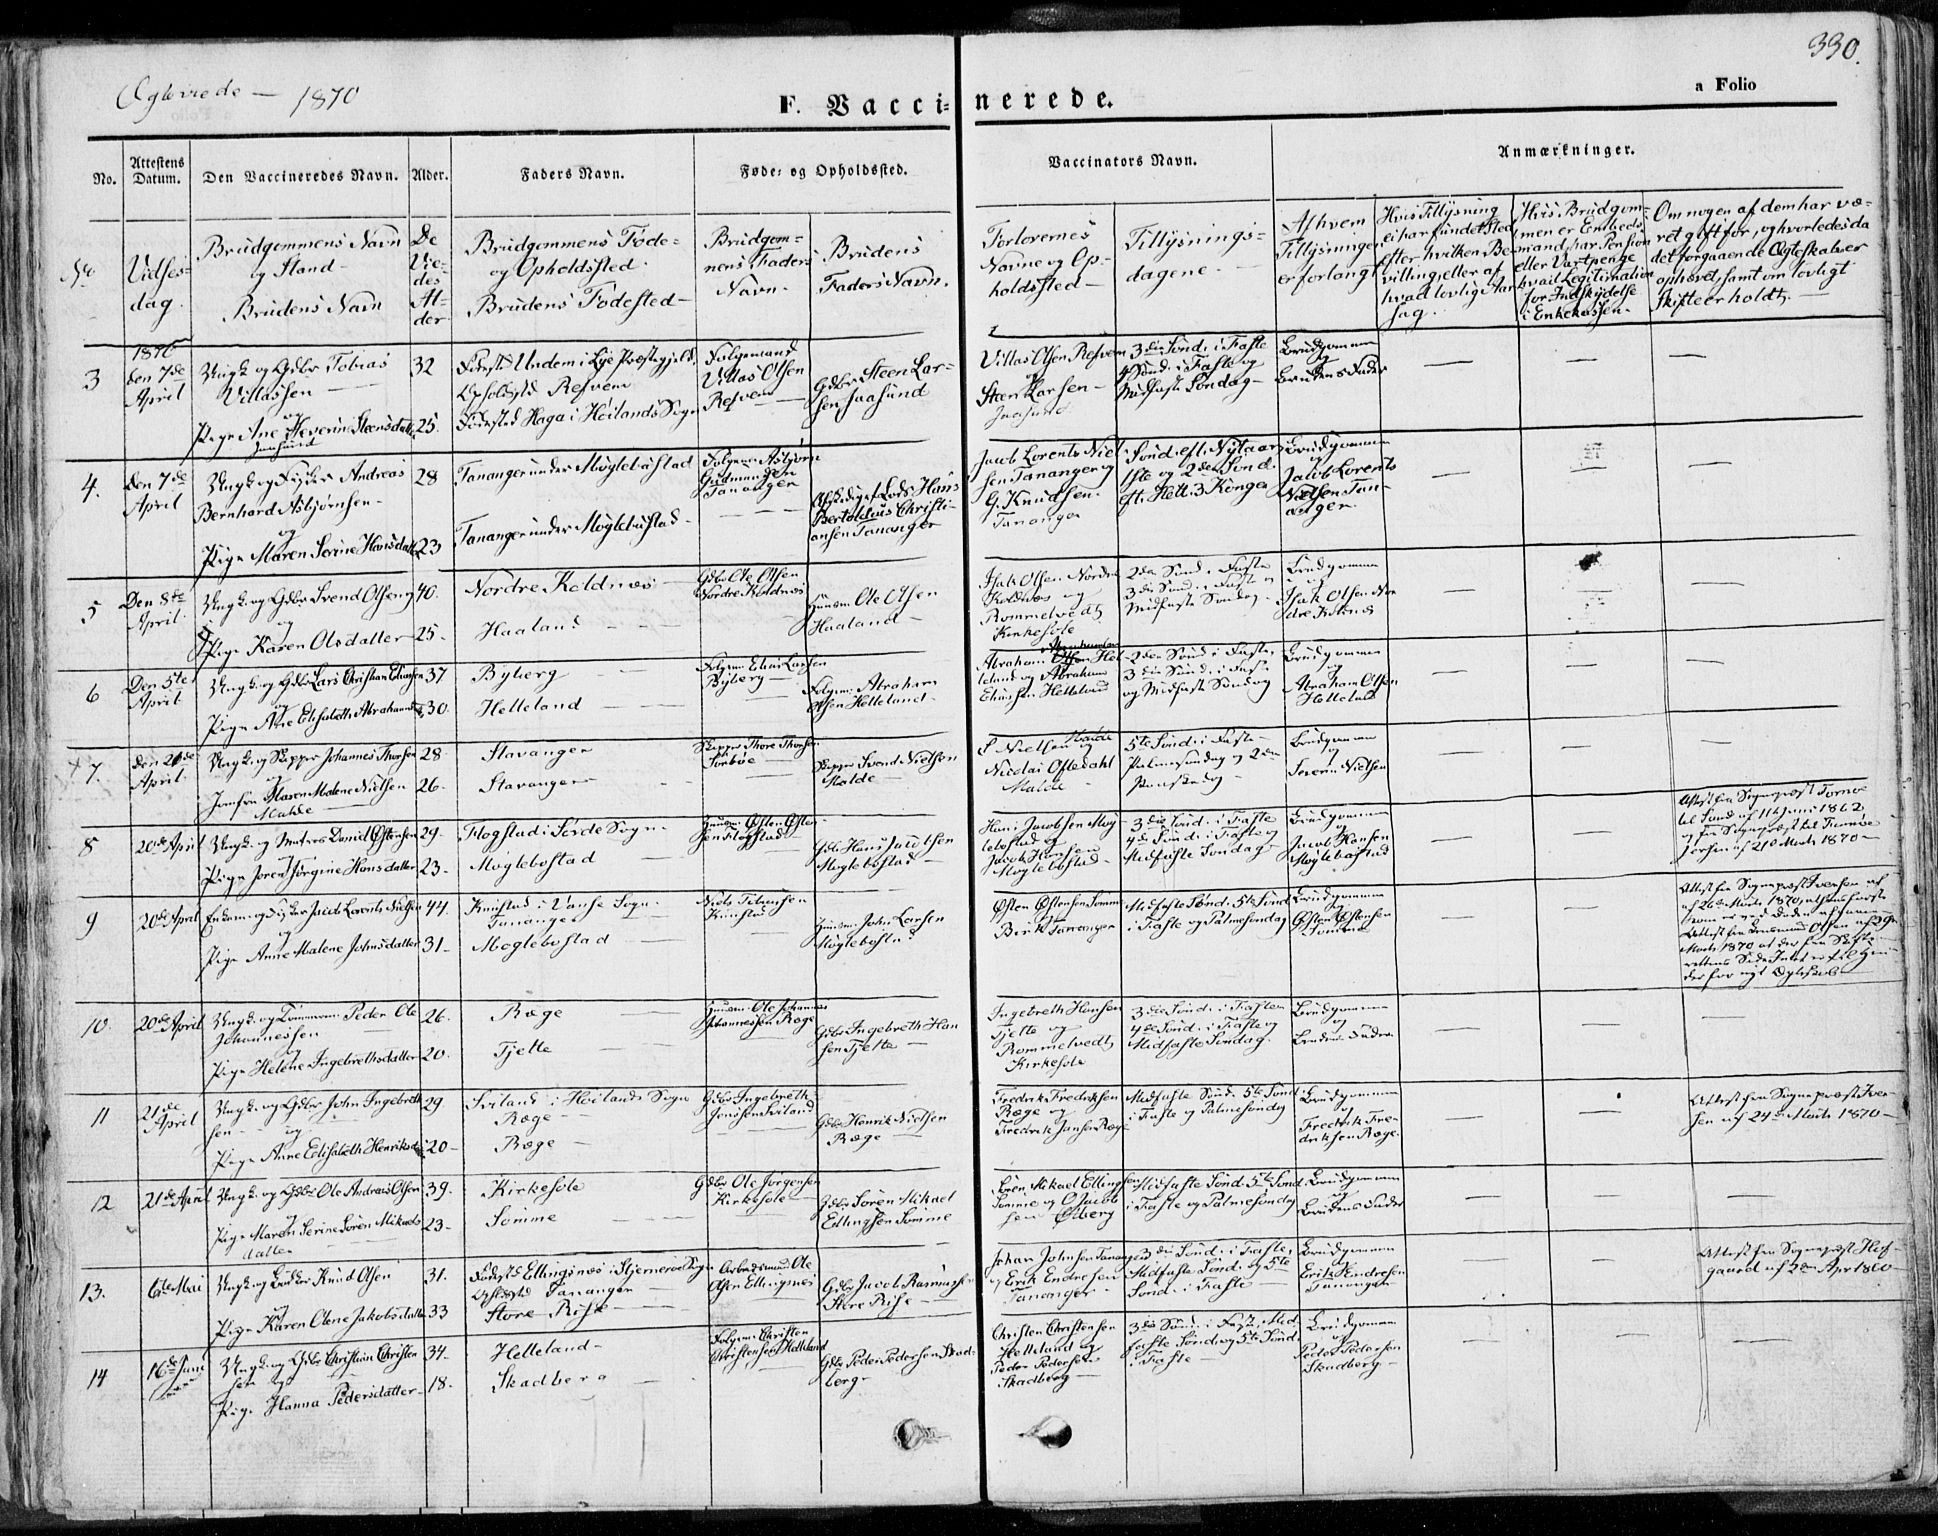 330.
Ægteviede — 1870
F. Vaccinerede.
a Folio
No.
Attestens Datum.
Den Vaccineredes Navn.
Alder.
Faders Navn.
Føde- og Opholdssted.
Vaccinators Navn.
Anmærkninger.
No
Vielsesdag.
Brudgommens Navn
og Stand
Brudens Navn
De Viedes Alder
Brudgommens Føde-
og Opholdssted.
Brudens Fødested
Brudgommens Faders Navn.
Brudens
Faders Navn.
Forlovernes
Navne og Op-
holdssted
Tillysnings-
dagene.
Af hvem
Tillysningen
er forlangt
Hvis Tillysning
ei har fundet Sted
efter hvilken Be-
villing, eller af
hvad lovlig Aar-
sag.
Hvis Brudgom-
men er Embeds-
mand, har Pension
eller Vartpenge
hvad Legitimation
for Indskydelse
i Enkekassen.
Om nogen af dem har væ-
ret gift før, og hvorledes da
det forgaaende Ægteskab er
ophævet, samt om lovligt
Skifte er holdt.
1870
3
den 7de April
Ungk. og Gdbr Tobias
Villassen
og
Pige Ane Severine Steensdatter
Jaasund
32
25.
Fødested Undem i Lye Præstegjeld
Opholdsstd Refvem
Fødested Haga i Høilands Sogn
Folgemand
Villas Olsen
Refvem
Gdbr Steen Lar-
sen Jaasund
Villas Olsen Refvem
og
Steen Larsen
Jaasund
3die Sønd. i Faste
4 Sønd. i Faste og
Midfaste Søndag
Brudgommen
og
Brudens Fader
4.
Den 7de April
Ungk. og Fisker Andreas
Bernhard Asbjørnsen
og
Pige Maren Serine Hansdatter
28
23
Tananger under Møglebustad
Tananger under Møglebustad
Folgem. Asbjørn
Gudmundsen
Tananger
Afskediget Lods Hans
Bertoldius Christi-
ansen Tananger
Jacob Lorents Niel-
sen Tananger og
G. Knudsen
Tananger
Sønd. eft. Nytaar
1ste og 2den Sønd.
eft. Hell. 3 Konger
Brudgommen
og
Jacob Lorents
Nielsen Tan-
anger.
5
Den 8de April
Ungk. og Gdbr Svend Olsen
og
Pige Karen Olsdatter
40.
25
Nordre Koldnæs
Haaland
Gdbr Ole Olsen
Nordre Koldnæs
Huusm. Ole Olsen
Haaland
Isak Olsen Nordre
Koldnæs og
Rommelvedt
Kirkesole
2den Sønd. i Faste
3die Sønd. i Faste og
Midfaste Søndag
Brudgommen
og
Isak Olsen Nor-
dre Kolnes
6
Den 5te April
Ungk. og Gdbr Lars Christian Eliassen
og
Pige Ane Elisabeth Abrahamsd.
37
30.
Byberg
Helleland
Folgem. Elias Larsen
Byberg
Folgem. Abraham
Olsen Helleland
Abraham Olsen Hel-
leland og Abraham
Eliassen Helleland
2den Sønd. i Faste,
3die Sønd. i Faste
og Midfaste Søndag
Brudgommen
og
Abraham Olsen
Helleland
7.
den 20de April
Ungk. og Skipper Johannes Thorsen
og
Jomfru Maren Malene Nielsen
Malde
28
26.
Stavanger
Stavanger
Skipper Thore Thorsen
Sørbøe
Skipper Svend Nielsen
Malde
S Nielsen Malde
og
Nicolai Oftedahl
Malde
5te Sønd. i Faste
Palmesøndag og 2den
Paaskedag
Brudgommen
og
Severin Nielsen
8
20de April
Ungk. og Matros Daniel Østensen
og
Pige Joren Jørgine Hansdatter
29
23
Flogstad i Sørde Sogn
Møglebostad
Huusm. Østen Østen-
sen Flogstad
Gdbr Hans Jacobsen
Møglebostad
Hans Jacobsen Møg-
lebostad og
Jacob Hansen
Møglebostad
3die Sønd. i Faste
4de Sønd. i Faste og
Midfaste Søndag
Brudgommen
og
Jacob Hansen
Møglebostad
Attest fra Sogneprest Tornøe
til Sand af 11te Juni 1862
og fra Sogneprest til
af 21de Marts 1870
9
20de April
Enkem. og Fisker Jacob Lorents Nielsen
og
Pige Anne Malene Johnsdatter
44.
31
Kunstad i Vanse Sogn
Tananger
Møglebostad
Niels Tobiasen
Kunstad
Huusm. John Larsen
Møglebostad
Østen Østensen Sømme
Berk Tananger
Midfaste Sønd. 5te Sønd
i Faste og Palmesøndag
Brudgommen
og
Østen Østensen
Sømme
Attest fra Sogneprest Iversen af
26de Marts 1870
Attest fra Lensmand Olsen af 29de
Marts 1870 at der fra Skifte-
rettens Side Intet er til Hin-
der for nyt Ægteskab
10
20de April
Ungk. og Tømmerm. Peder Ole
Johannessen
og
Pige Helene Ingebrethsdatter
26.
20.
Ræge
Tjelte
Huusm. Ole Johannes
Johannessen Ræge
Gdbr Ingebreth Han-
sen Tjelte
Ingebreth Hansen
Tjelte og
Rommelvedt
Kirkesole
3die Sønd. i Faste
4de Sønd. i Faste og
Midfaste Søndag.
Brudgommen
og
Brudens Fader
11
21de April
Ungk. og Gdbr John Ingebreth-
sen og
Pige Anne Elisabeth Henriksd.
29
20
Sviland i Høilands Sogn
Ræge
Ræge
Gdbr Ingebreth
Jonsen Sviland
Gdbr Henrik Nielsen
Ræge
Fredrik Fredriksen
Ræge og
Fredrik Jansen Ræge
Midfaste Sønd. 5te Sønd
i Faste og Palmesøndag
Brudgommen
og
Fredrik Fre-
driksen Ræge.
Attest fra Sogneprest Iver-
sen af 24de Marts 1870
12
21de April
Ungk. og Gdbr Ole Andreas Olsen
og
Pige Maren Serine Søren Mikaels-
datter
39.
23
Kirkesole
Sømme
Gdbr Ole Jørgensen
Kirkesole
Gdbr Søren Mikael
Ellingsen Sømme
Søren Mikael Ellingsen
Sømme og O Jacob-
senØlberg
Midfaste Sønd. 5te Sønd.
i Faste og Palmesøndag
Brudgommen
og
Brudens Fader
13.
6te Mai
Ungk. og Knud Olsen
og
Pige Karen Olene Jakobsdatter
31.
33
Fødested Ellingsnæs i Stjernerøe Sogn
Opholdsted Tananger
Store Risse
Arbeidsmand Ole
Olsen Ellingsnæs
Gdbr Jacob Rasmussen
Store Risse
Johan Johnsen Tananger
og Erik Endresen
Tananger
3die Sønd. i Faste,
Midfaste Sønd. og 5te
Sønd. i Faste
Brudgommen
og
Erik Endresen
Tananger
Attest fra Sogneprest Hof-
gaard af 2den Apr 1860
14
16de Juni
Ungk. og Gdbr Christian Christen-
sen og
Pige Hanna Pedersdatter
34
18.
Helleland
Skadberg
Folgem. Christen
Christensen Helleland
Gdbr Peder Pedersen Skad-
berg
Christen Christensen
Helleland og
Peder Pedersen
Skadberg
3die Sønd. i Faste, Mid-
faste Sønd. og 5te Sønd.
i Faste
Brudgommen
og
Peder Pedersen
Skadberg